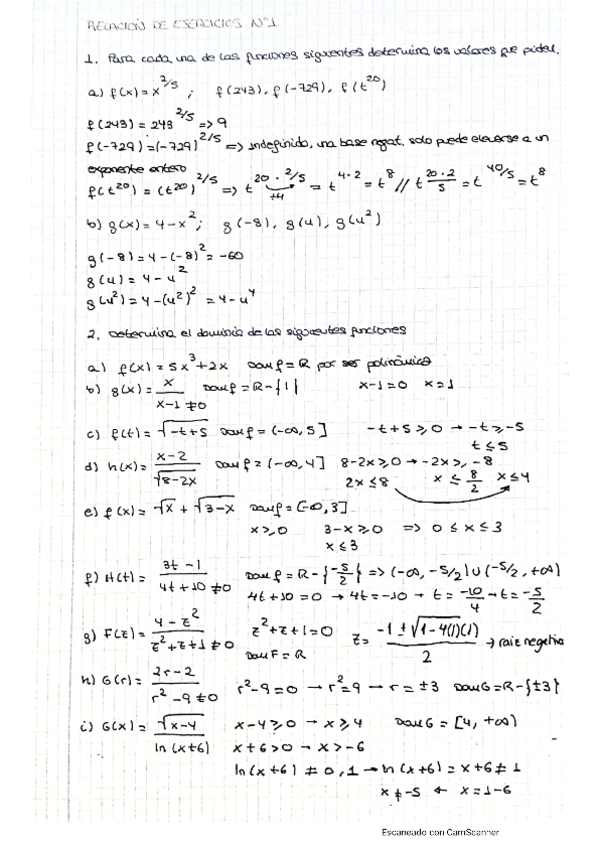 RELACIÓN DE EJERCICIOS Nº1
1. Para cada una de las funciones siguientes determina los valores que piden.
a) f(x) = x^2/5 ; f(243), f(-729), f(t^20)
f(243) = 243^2/5 => 9
f(-729) = (-729)^2/5 => Indefinido, una base negat. solo puede elevarse a un
exponente entero
f(t^20) = (t^20)^2/5 => t^20·2/5 = t^4·2 = t^8 // t^20·2/5 = t^40/5 = t^8
÷4
b) g(x) = 4-x^2; g(-8), g(u), g(u^2)
g(-8) = 4-(-8)^2 = -60
g(u) = 4-u^2
g(u^2) = 4-(u^2)^2 = 4-u^4
2. Determina el dominio de las siguientes funciones
a) f(x) = 5x^3+2x Dom f = R por ser polinómica
b) g(x) = x/(x-1≠0) Dom f = R-{1} x-1=0 x=1
c) f(t) = √(-t+5) Dom f = (-∞, 5] -t+5≥0 → -t≥-5
t≤5
d) h(x) = (x-2)/√(8-2x) Dom f = (-∞, 4] 8-2x≥0 → -2x≥-8
2x≤8 x≤8/2 x≤4
e) f(x) = √x + √(3-x) Dom f = [-∞, 3]
x≥0 3-x≥0 => 0≤x≤3
x≤3
f) H(t) = (3t-1)/(4t+10≠0) Dom f = R-{-5/2} => (-∞, -5/2) U (-5/2, +∞)
4t+10=0 → 4t=-10 → t=-10/4 → t=-5/2
g) F(z) = (4-z^2)/(z^2+z+1≠0) z^2+z+1=0 z = (-1±√(1-4(1)(1)))/2 → raíz negativa
Dom F = R
h) G(r) = (2r-2)/(r^2-9≠0) r^2-9=0 → r^2=9 → r=±3 Dom G = R-{±3}
i) G(x) = √(x-4)/ln(x+6) x-4≥0 → x≥4 Dom G = [4, +∞)
x+6>0 → x>-6
ln(x+6) ≠ 0,1 → ln(x+6) = x+6≠1
x≠-5 ← x=1-6
Escaneado con CamScanner